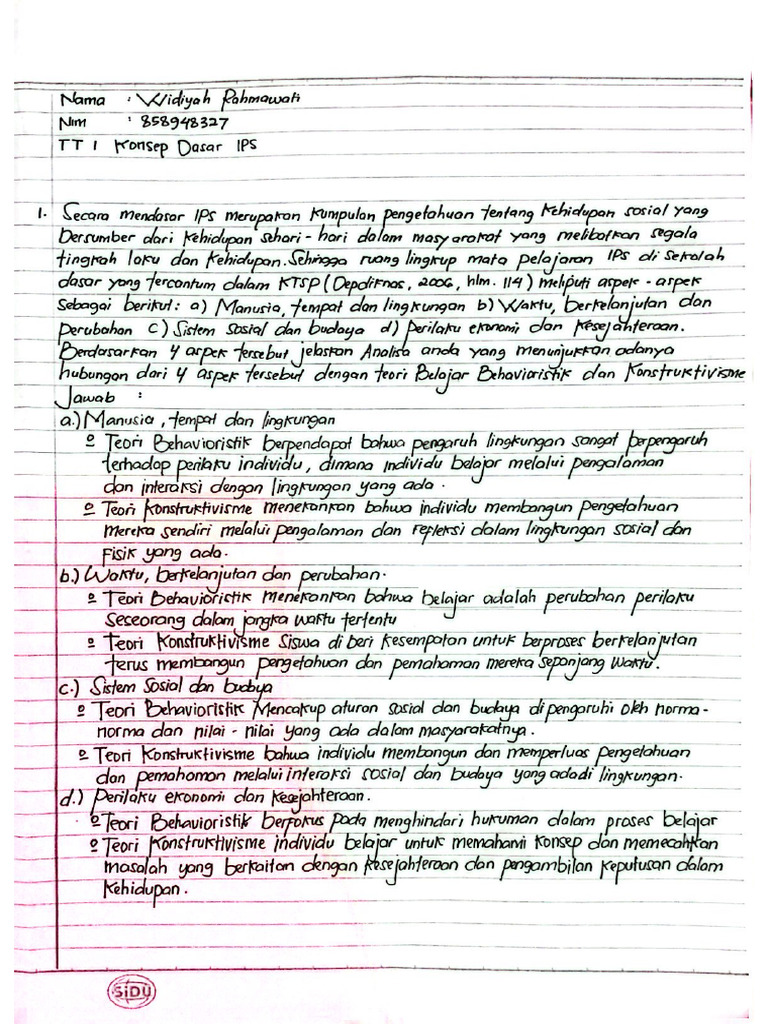 Nama : Widiyah Rahmawati
Nim : 858948327
TT 1 Konsep Dasar IPS
1. Secara mendasar IPS merupakan kumpulan pengetahuan tentang kehidupan sosial yang
Bersumber dari kehidupan sehari-hari dalam masyarakat yang melibatkan segala
tingkah laku dan kehidupan. Sehingga ruang lingkup mata pelajaran IPS di sekolah
dasar yang tercantum dalam KTSP (Depdiknas, 2006, hlm. 114) meliputi aspek-aspek
sebagai berikut: a) Manusia, tempat dan lingkungan b) Waktu, berkelanjutan dan
perubahan c) Sistem sosial dan budaya d) perilaku ekonomi dan kesejahteraan.
Berdasarkan 4 aspek tersebut jelaskan Analisa anda yang menunjukkan adanya
hubungan dari 4 aspek tersebut dengan teori Belajar Behavioristik dan Konstruktivisme
Jawab :
a.) Manusia, tempat dan lingkungan
o Teori Behavioristik berpendapat bahwa pengaruh lingkungan sangat berpengaruh
terhadap perilaku individu, dimana individu belajar melalui pengalaman
dan interaksi dengan lingkungan yang ada.
o Teori Konstruktivisme menekankan bahwa individu membangun pengetahuan
mereka sendiri melalui pengalaman dan refleksi dalam lingkungan sosial dan
fisik yang ada.
b.) Waktu, berkelanjutan dan perubahan.
o Teori Behavioristik menekankan bahwa belajar adalah perubahan perilaku
seseorang dalam jangka waktu tertentu
o Teori Konstruktivisme siswa di beri kesempatan untuk berproses berkelanjutan
terus membangun pengetahuan dan pemahaman mereka sepanjang waktu.
c.) Sistem Sosial dan budaya
o Teori Behavioristik Mencakup aturan sosial dan budaya di pengaruhi oleh norma-
norma dan nilai-nilai yang ada dalam masyarakatnya.
o Teori Konstruktivisme bahwa individu membangun dan memperluas pengetahuan
dan pemahaman melalui interaksi sosial dan budaya yang ada di lingkungan.
d.) Perilaku ekonomi dan kesejahteraan.
o Teori Behavioristik berfokus pada menghindari hukuman dalam proses belajar
o Teori Konstruktivisme individu belajar untuk memahami konsep dan memecahkan
masalah yang berkaitan dengan kesejahteraan dan pengambilan keputusan dalam
kehidupan.
SiDU